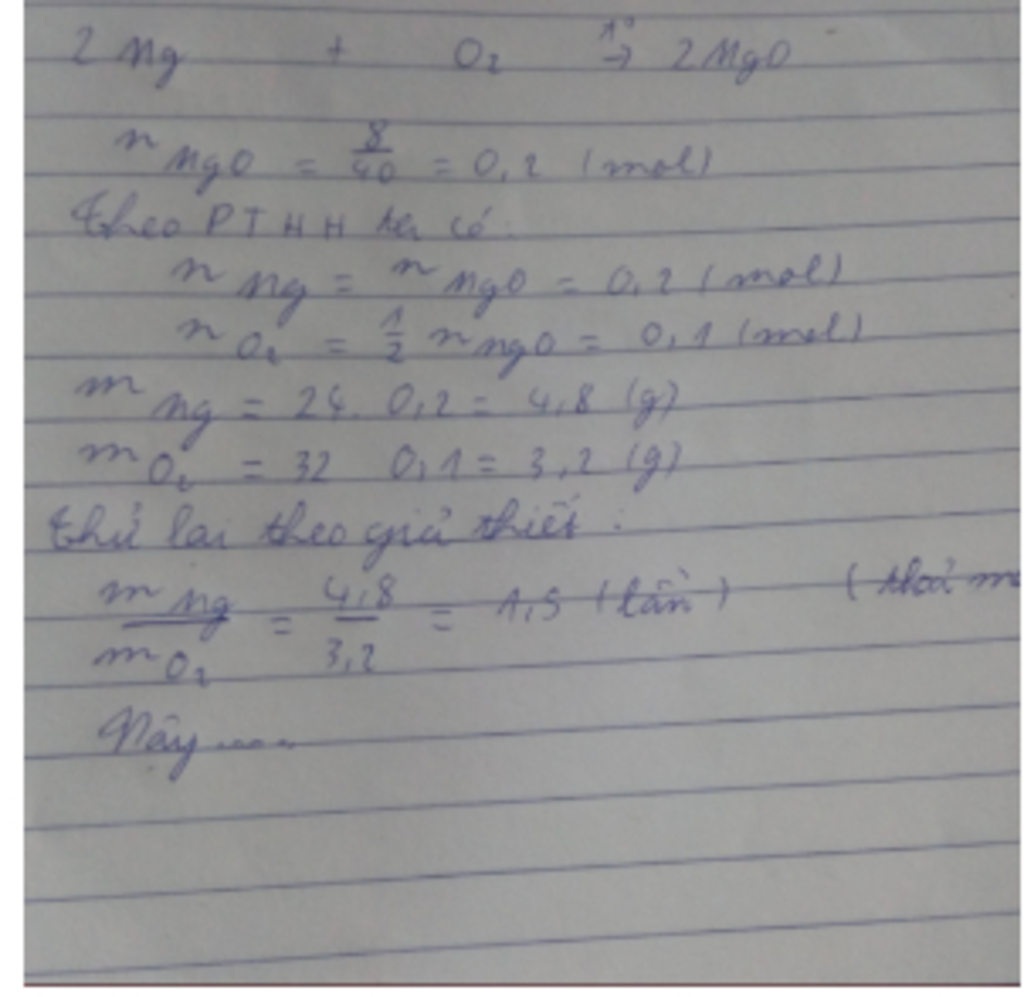 2 Mg + O2 t° → 2 MgO
n MgO = 8/40 = 0,2 (mol)
Theo PTHH ta có:
n Mg = n MgO = 0,2 (mol)
n O2 = 1/2 n MgO = 0,1 (mol)
m Mg = 24. 0,2 = 4,8 (g)
m O2 = 32 0,1 = 3,2 (g)
Thử lại theo giả thiết:
m Mg / m O2 = 4,8 / 3,2 = 1,5 (lần) (thoả m
Vậy .....